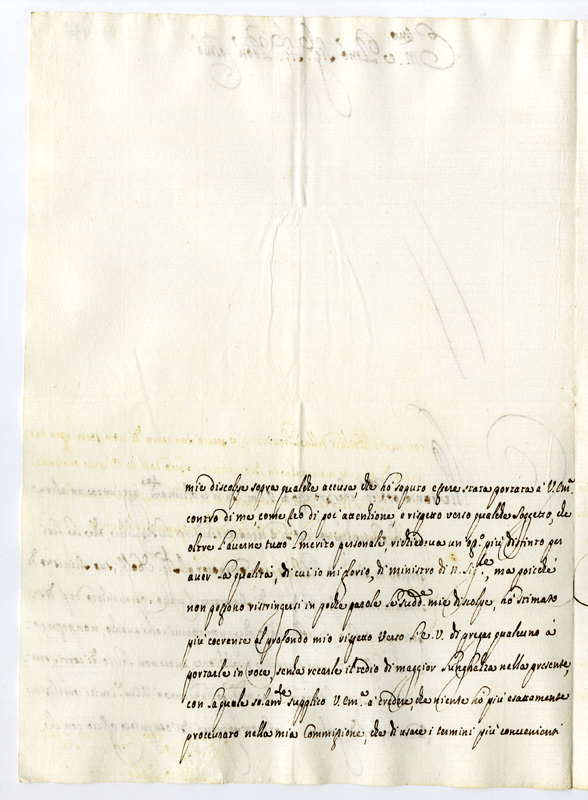 mie discolpe sopra qualche accusa, che hò saputo essere stata portata à V. Em.ª
contro di me come Reo di poc'attenzione, e rispetto verso qualche Soggetto, che
oltre l'averne tutto l'merito personale, richiedeva un og.º più distinto per
aver la qualità, di cui io mi glorio, di ministro di N. Sig.re, ma poiche
non possono ristringersi in poche parole le sudd.e mie discolpe, hò stimato
più coerente al profondo mio rispetto verso l'E. V. di pregar qualcuno à
portarle in voce, senza recarle il tedio di maggior lunghezza nella presente,
con la quale solam.te supplico V. Em.ª à credere che niente hò più esattamente
procurato nella mia Commissione, che di usare i termini più convenienti